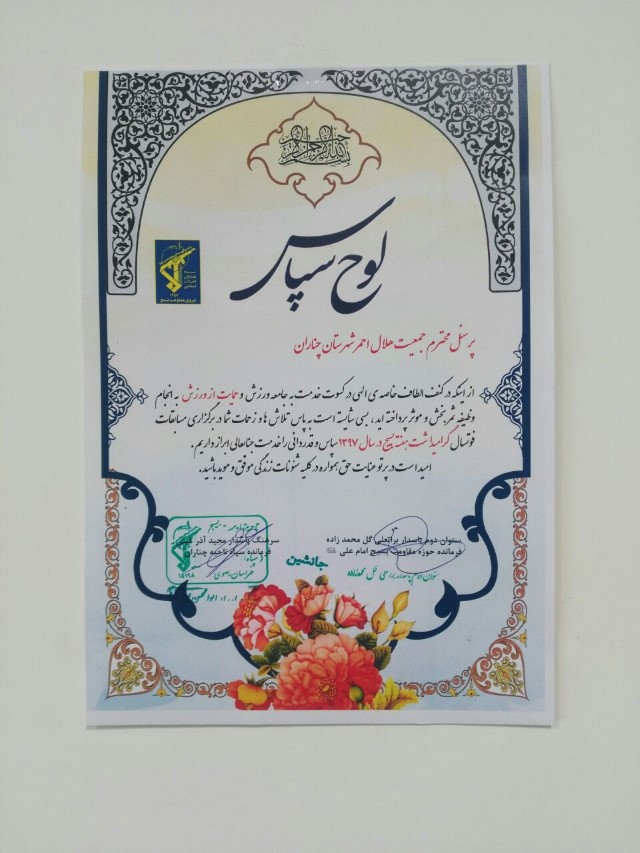 بسم الله الرحمن الرحیم
لوح سپاس
نیروی مقاومت بسیج
پرسنل محترم جمعیت هلال احمر شهرستان چناران
از اینکه در کنف الطاف خاصه ی الهی در کسوت خدمت به جامعه ورزش و حمایت از ورزش به انجام
وظیفه ثمربخش و موثر پرداخته اید، بسی شایسته است به پاس تلاش ها و زحمات شما در برگزاری مسابقات
فوتسال گرامیداشت هفته بسیج در سال ۱۳۹۷ سپاس و قدردانی را خدمت جنابعالی ابراز داریم.
امید است در پرتو عنایت حق همواره در کلیه شئونات زندگی موفق و موید باشید.
ستوان دوم پاسدار براتعلی گل محمد زاده
فرمانده حوزه مقاومت بسیج امام علی
سرهنگ پاسدار مجید آذر
فرمانده سپاه ناحیه چناران
جانشین
خراسان رضوی